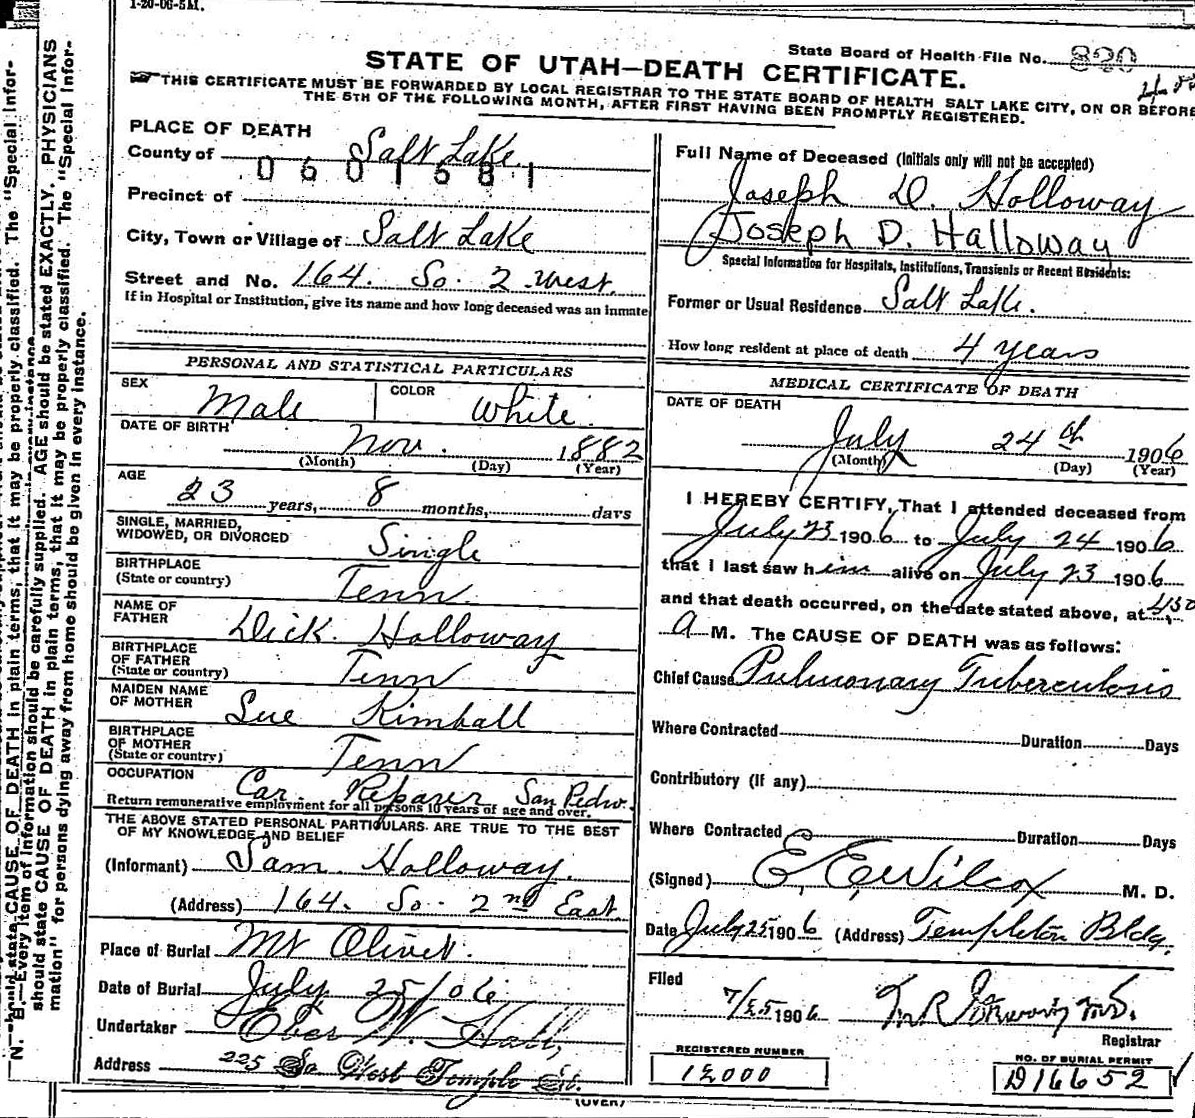 1-20-06-5M.
State Board of Health-File No. 820
STATE OF UTAH—DEATH CERTIFICATE.
THIS CERTIFICATE MUST BE FORWARDED BY LOCAL REGISTRAR TO THE STATE BOARD OF HEALTH SALT LAKE CITY, ON OR BEFORE
THE 5TH OF THE FOLLOWING MONTH, AFTER FIRST HAVING BEEN PROMPTLY REGISTERED.
PLACE OF DEATH
County of Salt Lake
0601681
Precinct of
City, Town or Village of Salt Lake
Street and No. 164. So. 2 West.
If in Hospital or Institution, give its name and how long deceased was an inmate
PERSONAL AND STATISTICAL PARTICULARS
SEX Male COLOR White.
DATE OF BIRTH Nov. 1882
(Month) (Day) (Year)
AGE
23 years, 8 months, days
SINGLE, MARRIED,
WIDOWED, OR DIVORCED Single
BIRTHPLACE
(State or country) Tenn.
NAME OF
FATHER Dick. Holloway
BIRTHPLACE
OF FATHER
(State or country) Tenn
MAIDEN NAME
OF MOTHER Sue Kimball
BIRTHPLACE
OF MOTHER
(State or country) Tenn
OCCUPATION Car. Repairer San Pedro.
Return remunerative employment for all persons 10 years of age and over.
THE ABOVE STATED PERSONAL PARTICULARS ARE TRUE TO THE BEST
OF MY KNOWLEDGE AND BELIEF
(Informant) Sam. Holloway.
(Address) 164. So. 2nd East.
Place of Burial Mt Olivet.
Date of Burial July 25/06
Undertaker Eber W. Hall,
Address 225 So West Temple St.
Full Name of Deceased (Initials only will not be accepted)
Joseph D. Holloway
Joseph D. Halloway
Special Information for Hospitals, Institutions, Transients or Recent Residents:
Former or Usual Residence Salt Lake.
How long resident at place of death 4 years
MEDICAL CERTIFICATE OF DEATH
DATE OF DEATH
July 24th 1906
(Month) (Day) (Year)
I HEREBY CERTIFY, That I attended deceased from
July 23 1906 to July 24 1906
that I last saw him alive on July 23 1906
and that death occurred, on the date stated above, at 4:30
a M. The CAUSE OF DEATH was as follows:
Chief Cause Pulmonary Tuberculosis
Where Contracted Duration Days
Contributory (If any)
Where Contracted Duration Days
(Signed) E. E. Wilcox M. D.
Date July 25 1906 (Address) Templeton Bldg.
Filed
7/25 1906
Registrar
REGISTERED NUMBER
12000
NO. OF BURIAL PERMIT
D16652
(OVER)
N. B.—Every item of information should be carefully supplied. AGE should be stated EXACTLY. PHYSICIANS
should state CAUSE OF DEATH in plain terms, that it may be properly classified. The "Special Infor-
mation" for persons dying away from home should be given in every instance.